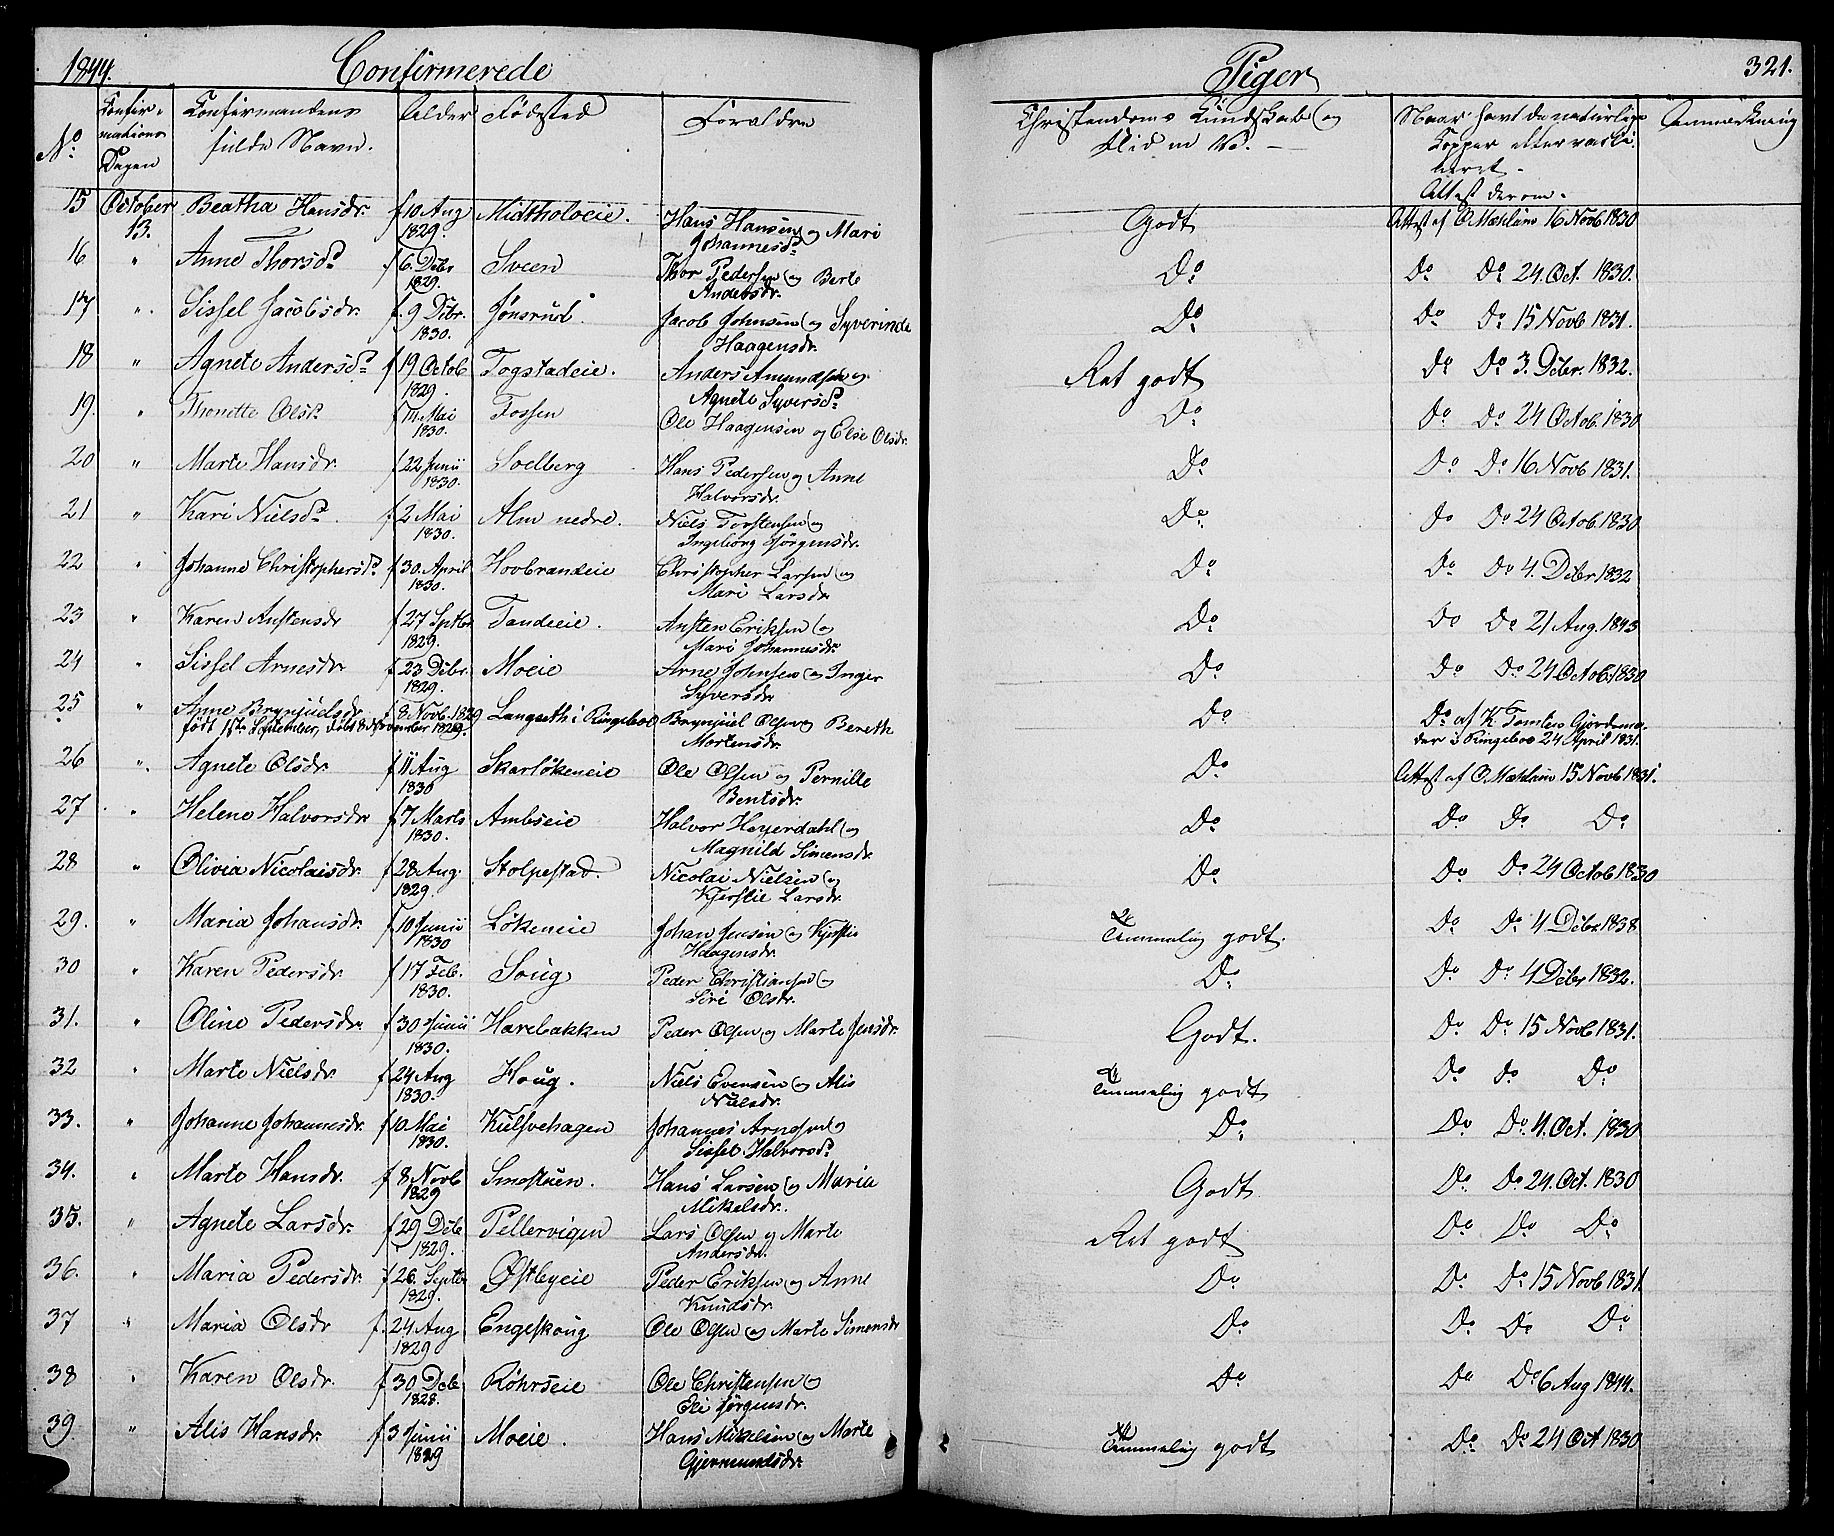 1844. Confirmerede Piger 321.
No. Confirmations Dagen Confirmandens fulde Navn. Alder Fødested Forældre Christendoms Kundskab og Flid m. V. Naar havt de naturlige Kopper eller vacci-
neret. Attest derom. Anmærkning
15 October 13. Beatha Hansdr. f 10 Aug 1829. Midtholoeie. Hans Hansen og Mari Johannesdr. Godt Attest af O. Mæhlum 16 Novb 1830
16 " Anne Thorsdr. f 6. Debr 1829. Sveen Thor Pedersen og Berte Andersdr. Do Do Do 24 Oct. 1830.
17 " Sissel Jacobsdr. f. 9 Debr. 1830. Jønsrud. Jacob Johnsen og Syverinde Haagensdr. Do Do Do 15 Novb 1831.
18 " Agnete Andersdr f 19 Octob 1829. Togstadeie. Anders Amundsen og Agnete Syversdr. Ret godt Do Do 3. Debr. 1832.
19. " Thonette Olsdr. f 11. Mai 1830. Fossen Ole Haagensen og Else Olsdr. Do Do Do 24 Octob. 1830
20 " Marte Hansdr. f 22 Junii 1830. Soelberg Hans Pedersen og Anne Halvorsdr. Do Do Do 16 Novb 1831.
21 " Kari Nielsdr. f. 2 Mai 1830. Alm nedre. Niels Torstensen og Ingeborg Jørgensdr. Do Do Do 24 Octob 1830
22 " Johanne Christophersdr f 30. April 1830. Hovbrandeie Christopher Larsen og Mari Larsdr Do Do Do 4. Debr 1832
23 " Karen Anstensdr f 27 Septbr 1829. Tandeeie. Ansten Eriksen og Mari Johannesdr. Do Do Do 21 Aug. 1843
24 " Sissel Arnesdr. f 23 Debr. 1829. Moeie Arne Johnsen og Inger Syversdr. Do Do Do 24 Octob 1830
25 " Anne Brynjuelsdr. f 8 Novb. 1829 Langseth i Ringeboe Brynjuel Olsen og Bereth Mortensdr. Do Do af K Tomlen Gjordemo-
født 15de September, døbt 8 November 1829. der i Ringeboe 24 April 1831.
26 " Agnete Olsdr. f 11 Aug 1830 Skarløkeneie Ole Olsen og Pernille Bentsdr. Do Attest af O. Mæhlum 15 Novb 1831.
27 " Helene Halvorsdr f 7 Marts 1830. Ambseie Halvor Heyerdahl og Magnild Simensdr. Do Do Do Do
28 " Olivia Nicolaisdr. f 28 Aug. 1829. Stolpestad. Nicolai Nielsen og Kjerstie Larsdr. Do Do Do 24 Octob 1830
29. " Maria Johansdr. f 10 Junii 1830 Løkeneie Johan Jensen og Kjerstie Haagensdr. Temmelig godt. Do Do 4 Debr 1838
30 " Karen Pedersdr. f 17 Feb. 1830. Soug Peder Christiansen og Siri Olsdr. Do Do Do 4 Debr 1832.
31. " Oline Pedersdr. f 30 Junii 1830. Harebakken Peder Olsen og Marte Jensdr. Godt. Do Do 15 Novb 1831.
32 " Marte Nielsdr. f 24 Aug 1830. Houg. Niels Evensen og Alis Nielsdr. Temmelig godt Do Do Do
33. " Johanne Johannesdr. f 10 Mai 1830. Kulsvehagen Johannes Arnesen og Sissel Halvorsdr Do Do Do 4. Oct. 1830
34. " Marte Hansdr. f 8 Novb 1829 Smestuen. Hans Larsen og Maria Mikelsdr. Godt Do Do 24. Oct. 1830
35. " Agnete Larsdr. f 29 Deb 1829. Pellervigen Lars Olsen og Marte Andersdr. Ret godt Do Do Do
36. " Maria Pedersdr. f 26. Septbr 1829. Østbyeie Peder Eriksen og Anne Knudsdr. Do Do Do 15 Novb 1831.
37 " Maria Olsdr f. 24 Aug 1829 Engeskoug Ole Olsen og Marte Simensdr Do Do Do Do
38 " Karen Olsdr. f 30 Deb 1828. Røhrseie Ole Christensen og Eli Jørgensdr. Do Do Do 6 Aug 1844.
39 " Alis Hansdr. f 3 Junii 1829 Moeie. Hans Mikelsen og Marte Gjermundsdr. Temmelig godt Do Do 24 Oct 1830